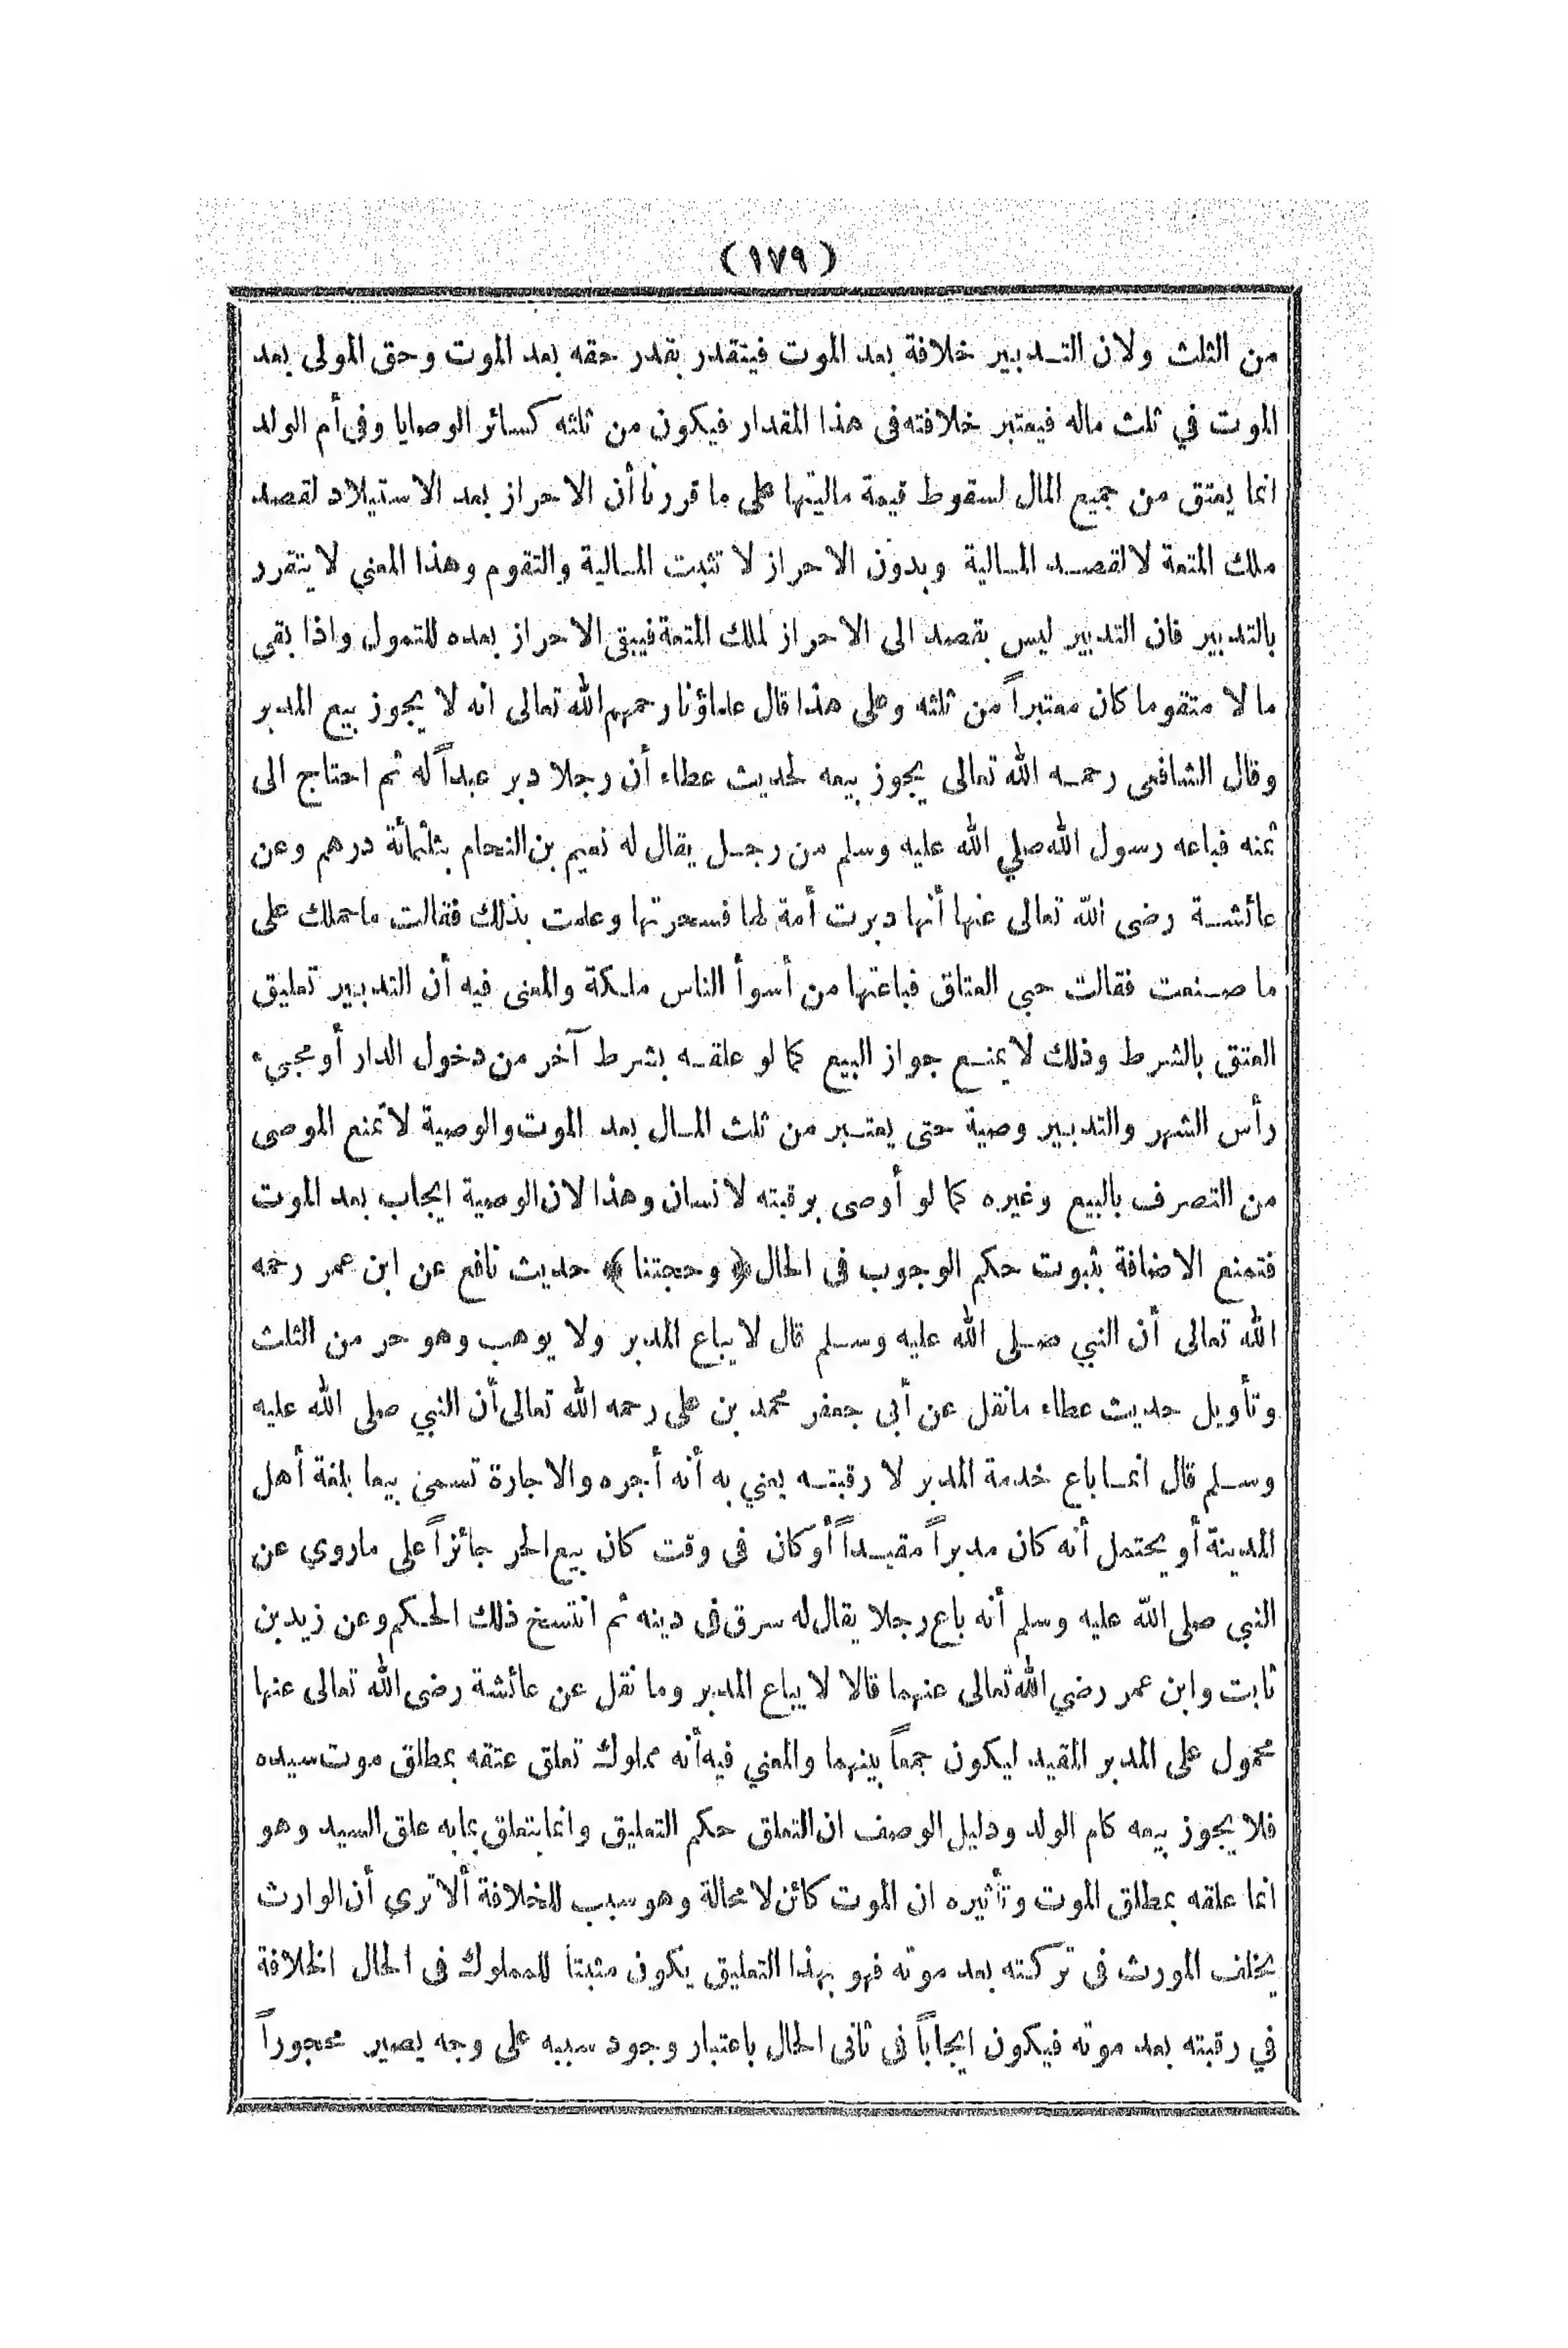 (١٧٩)
من الثلث ولان التدبير خلافة بعد الموت فيتقدر بقدر حقه بعد الموت وحق المولى بعد
الموت في ثلث ماله فيعتبر خلافته فى هذا المقدار فيكون من ثلثه كسائر الوصايا وفى أم الولد
انما يعتق من جميع المال لسقوط قيمة ماليتها على ما قررنا أن الاحراز بعد الاستيلاد لقصد
ملك المتعة لا لقصد المالية وبدون الاحراز لا تثبت المالية والتقوم وهذا المعني لا يتقرر
بالتدبير فان التدبير ليس بقصد الى الاحراز لملك المتعة فيبقى الاحراز بعده للتمول واذا بقي
مالا متقوما كان معتبراً من ثلثه وعلى هذا قال علماؤنا رحمهم الله تعالى انه لا يجوز بيع المدبر
وقال الشافعى رحمه الله تعالى يجوز بيعه لحديث عطاء أن رجلا دبر عبداً له ثم احتاج الى
ثمنه فباعه رسول الله صلي الله عليه وسلم من رجل يقال له نعيم بن النحام بثلثمائة درهم وعن
عائشة رضى الله تعالى عنها أنها دبرت أمة لها فسحرتها وعلمت بذلك فقالت ما حملك على
ما صنعت فقالت حبي العتاق فباعتها من أسوأ الناس ملكة والمعنى فيه أن التدبير تعليق
العتق بالشرط وذلك لا يمنع جواز البيع كما لو علقه بشرط آخر من دخول الدار أو مجىء
رأس الشهر والتدبير وصية حتى يعتبر من ثلث المال بعد الموت والوصية لا تمنع الموصى
من التصرف بالبيع وغيره كما لو أوصى برقبته لانسان وهذا لان الوصية ايجاب بعد الموت
فتمنع الاضافة بثبوت حكم الوجوب فى الحال ﴿وحجتنا﴾ حديث نافع عن ابن عمر رحمه
الله تعالى أن النبي صلى الله عليه وسلم قال لا يباع المدبر ولا يوهب وهو حر من الثلث
وتأويل حديث عطاء ما نقل عن أبى جعفر محمد بن على رحمه الله تعالى أن النبي صلى الله عليه
وسلم قال انما باع خدمة المدبر لا رقبته يعني به أنه أجره والاجارة تسمى بيعا بلغة أهل
المدينة أو يحتمل أنه كان مدبراً مقيداً أو كان فى وقت كان بيع الحر جائزاً على ما روي عن
النبي صلى الله عليه وسلم أنه باع رجلا يقال له سرق فى دينه ثم انتسخ ذلك الحكم وعن زيد بن
ثابت وابن عمر رضي الله تعالى عنهما قالا لا يباع المدبر وما نقل عن عائشة رضى الله تعالى عنها
محمول على المدبر المقيد ليكون جمعاً بينهما والمعني فيه أنه مملوك تعلق عتقه بمطلق موت سيده
فلا يجوز بيعه كام الولد ودليل الوصف ان التعلق حكم التعليق وانما يتعلق بما به علق السيد وهو
انما علقه بمطلق الموت وتأثيره ان الموت كائن لا محالة وهو سبب للخلافة ألا تري أن الوارث
يخلف المورث فى تركته بعد موته فهو بهذا التعليق يكون مثبتا للمملوك فى الحال الخلافة
في رقبته بعد موته فيكون ايجاباً فى ثانى الحال باعتبار وجود سببه على وجه يصير محجوراً